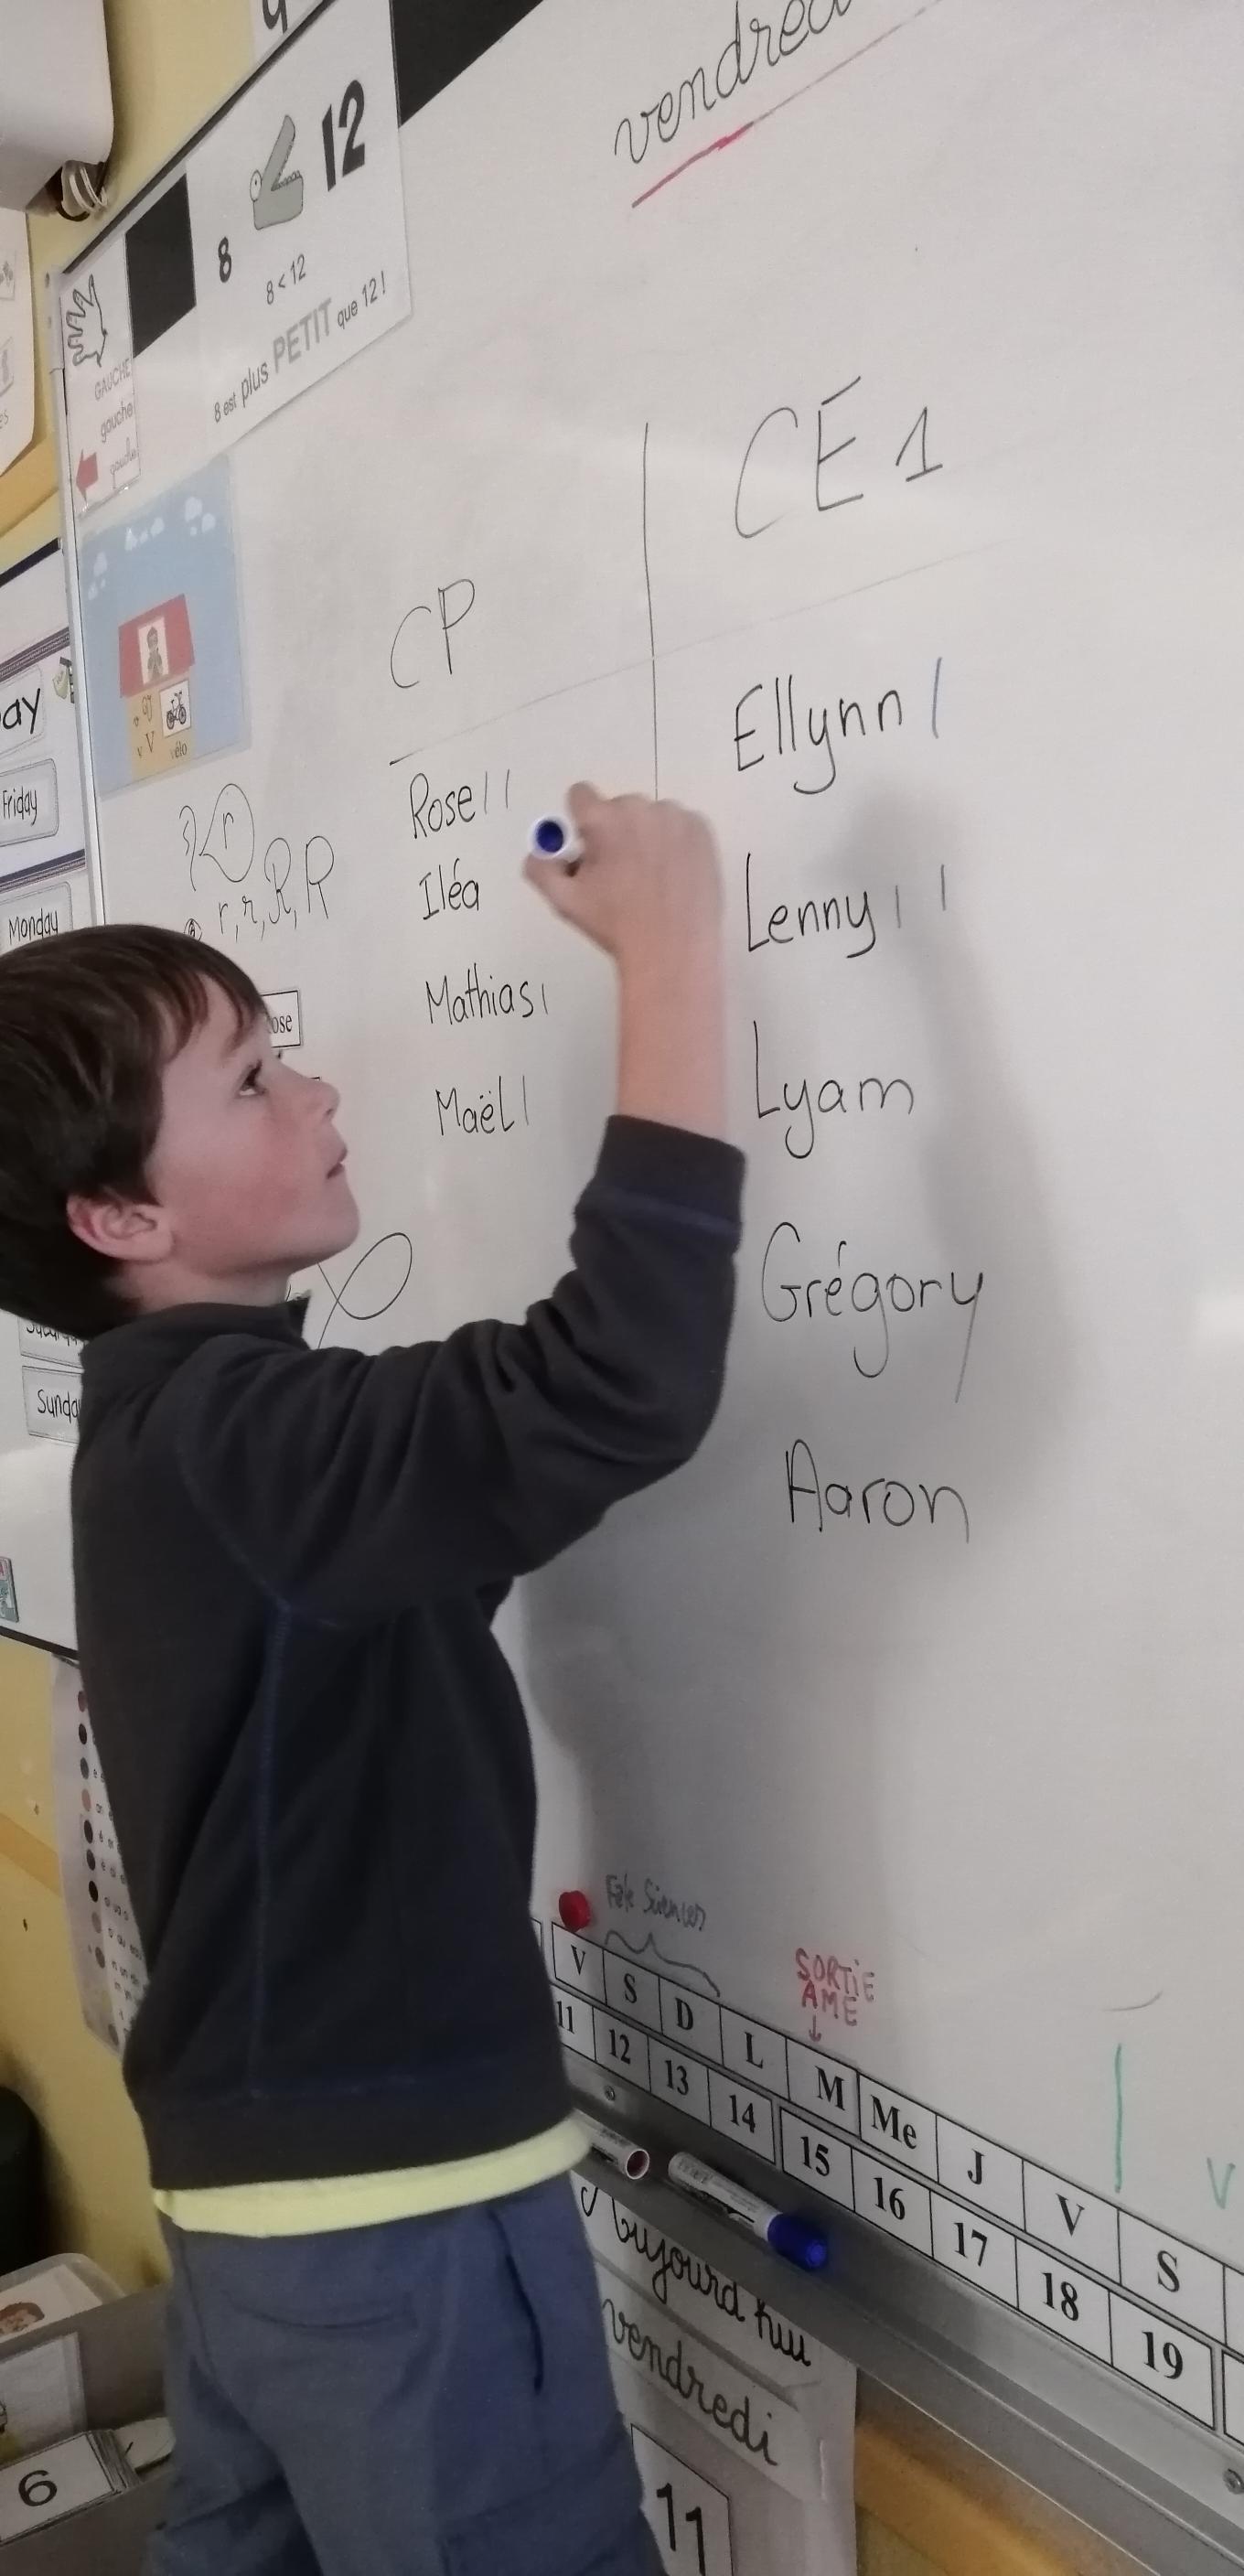 vendredi
8 12
8 < 12
8 est plus PETIT que 12 !
GAUCHE
gauche
gauche
v V vélo
CP
CE1
Rose
Iléa
Mathias
Maël
Ellynn
Lenny
Lyam
Grégory
Aaron
r, r, R, R
Friday
Monday
Sunday
SORTIE
AME
V S D L M Me J V S
11 12 13 14 15 16 17 18 19
V
Aujourd'hui
vendredi
11
6